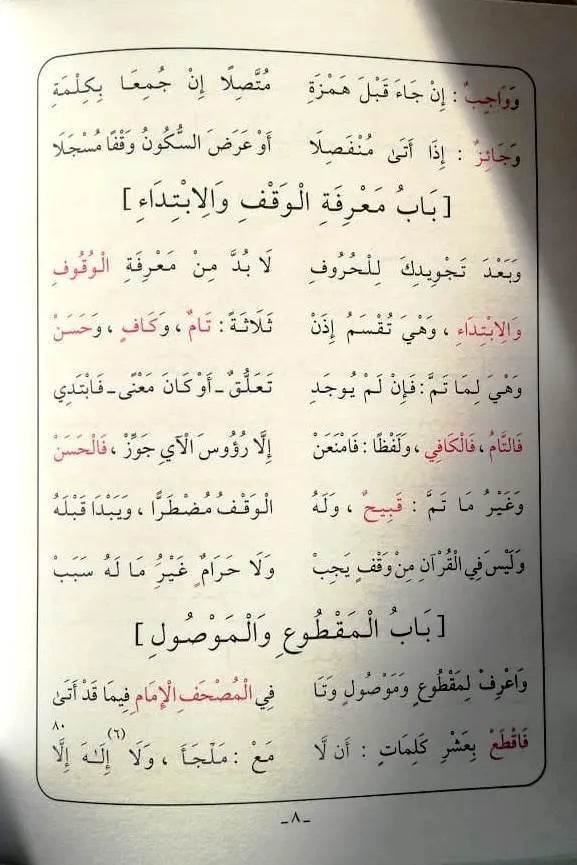 وَوَاجِبٌ : إِنْ جَاءَ قَبْلَ هَمْزَةِ مُتَّصِلًا إِنْ جُمِعَا بِكِلْمَةِ
وَجَائِزٌ : إِذَا أَتَىٰ مُنْفَصِلَا أَوْ عَرَضَ السُّكُونُ وَقْفًا مُسْجَلَا
[ بَابُ مَعْرِفَةِ الْوَقْفِ وَالِابْتِدَاءِ ]
وَبَعْدَ تَجْوِيدِكَ لِلْحُرُوفِ لَا بُدَّ مِنْ مَعْرِفَةِ الْوُقُوفِ
وَالِابْتِدَاءِ ، وَهْيَ تُقْسَمُ إِذَنْ ثَلَاثَةً : تَامٌ ، وَكَافٍ ، وَحَسَنْ
وَهْيَ لِمَا تَمَّ : فَإِنْ لَمْ يُوجَدِ تَعَلُّقٌ - أَوْ كَانَ مَعْنًى - فَابْتَدِي
فَالتَّامُ ، فَالْكَافِي ، وَلَفْظًا : فَامْنَعَنْ إِلَّا رُؤُوسَ الْآيِ جَوِّزْ ، فَالْحَسَنْ
وَغَيْرُ مَا تَمَّ : قَبِيحٌ ، وَلَهُ الْوَقْفُ مُضْطَرًّا ، وَيَبْدَا قَبْلَهُ
وَلَيْسَ فِي الْقُرْآنِ مِنْ وَقْفٍ يَجِبْ وَلَا حَرَامٌ غَيْرُ مَا لَهُ سَبَبْ
[ بَابُ الْمَقْطُوعِ وَالْمَوْصُولِ ]
وَاعْرِفْ لِمَقْطُوعٍ وَمَوْصُولٍ وَتَا فِي الْمُصْحَفِ الْإِمَامِ فِيمَا قَدْ أَتَىٰ
فَاقْطَعْ بِعَشْرِ كَلِمَاتٍ : أَن لَّا مَعْ : مَلْجَأَ ، وَلَا إِلَـٰهَ إِلَّا (٦) ٨٠
-٨-